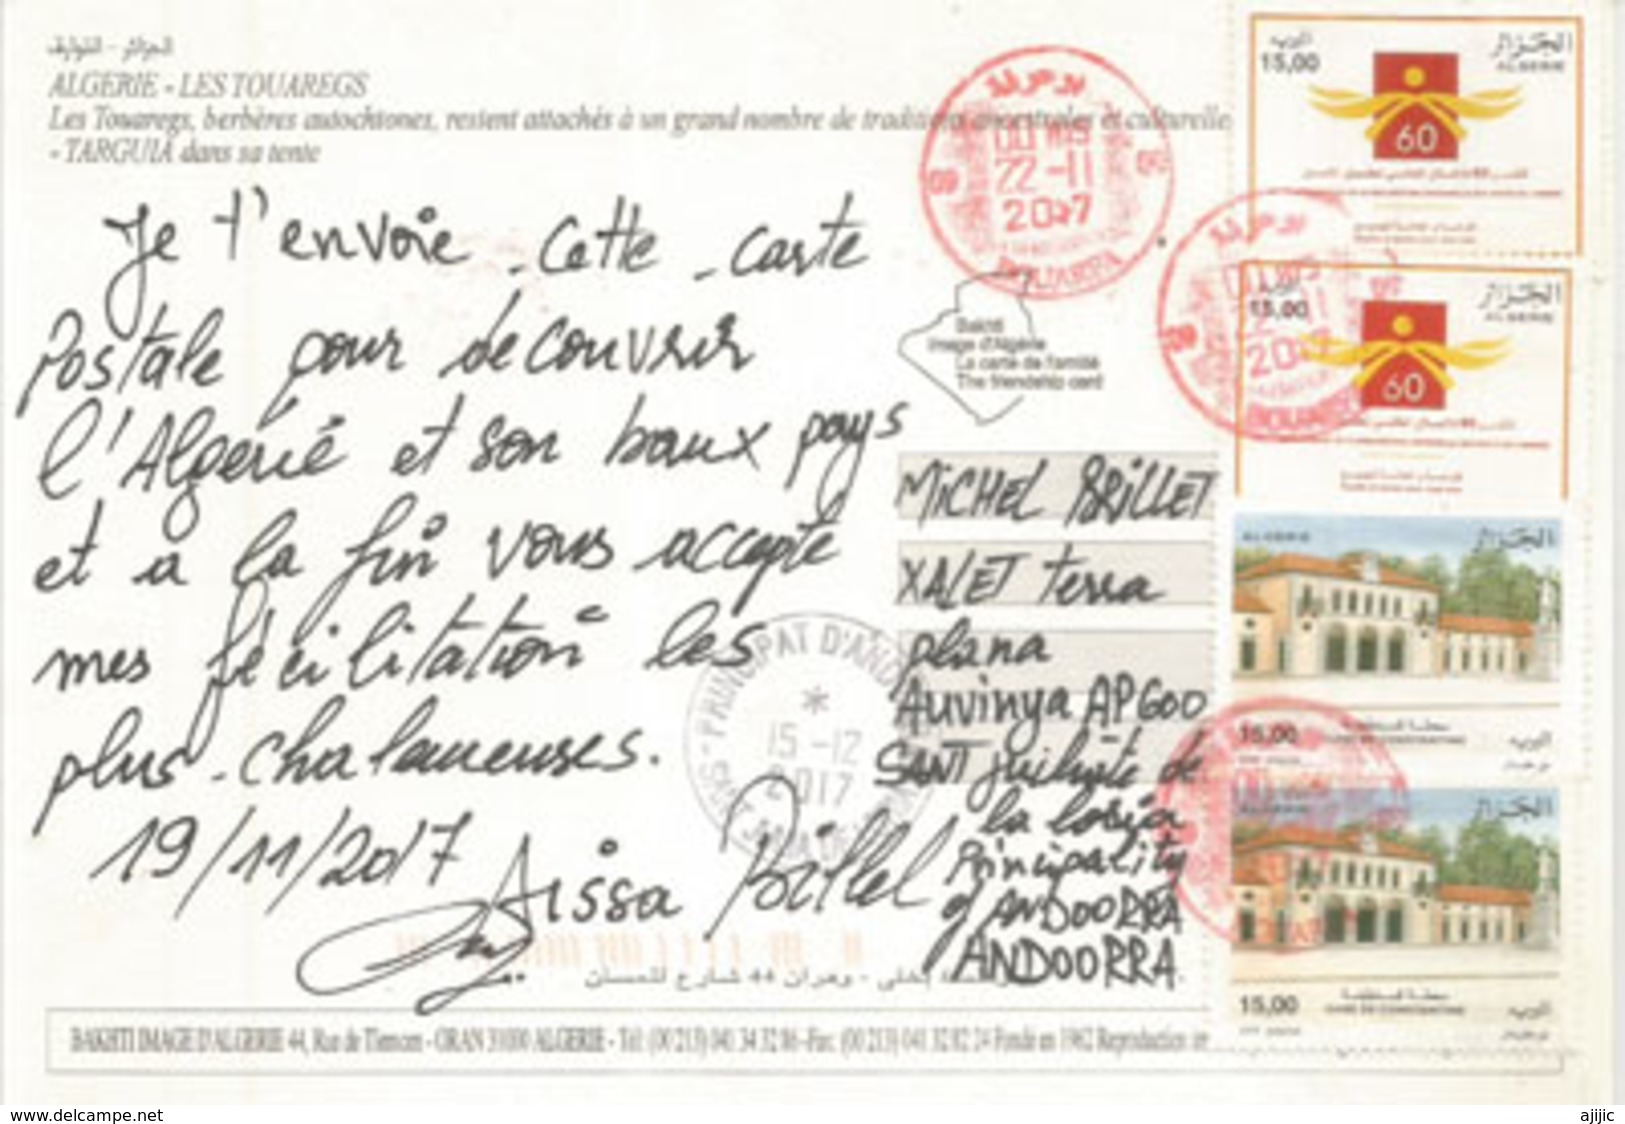 الجزائر - التوارق
ALGERIE - LES TOUAREGS
Les Touaregs, berbères autochtones, restent attachés à un grand nombre de traditions ancestrales et culturelle
- TARGUIA dans sa tente
Je t'envoie cette carte
Postale pour decouvrir
l'Algérié et son baux pays
et a la fin vous accepte
mes fécilitation les
plus chalaeueuses.
19/11/2017
Aissa Billel
22-11
2017
BOUARFA
Bakhti
Image d'Algérie
La carte de l'amitié
The friendship card
MICHEL BRILLET
XALET terra
plana
Auvinya AP600
SANT juilia de
la loria
Principality
of ANDORRA
ANDORRA
PRINCIPAT D'AND
15-12
2017
الجزائر
ALGERIE
15,00
60
الجزائر
ALGERIE
15,00
60
ALGERIE
الجزائر
15,00
GARE DE CONSTANTINE
الجزائر
15,00
GARE DE CONSTANTINE
وهران 44 شارع تلمسان
BAKHTI IMAGE D'ALGERIE 44, Rue de Tlemcen - ORAN 31000 ALGERIE - Tél: (00 213) 041 34 32 86 - Fax: (00 213) 041 32 82 24 Fondé en 1962 Reproduction in
www.delcampe.net
ajijic